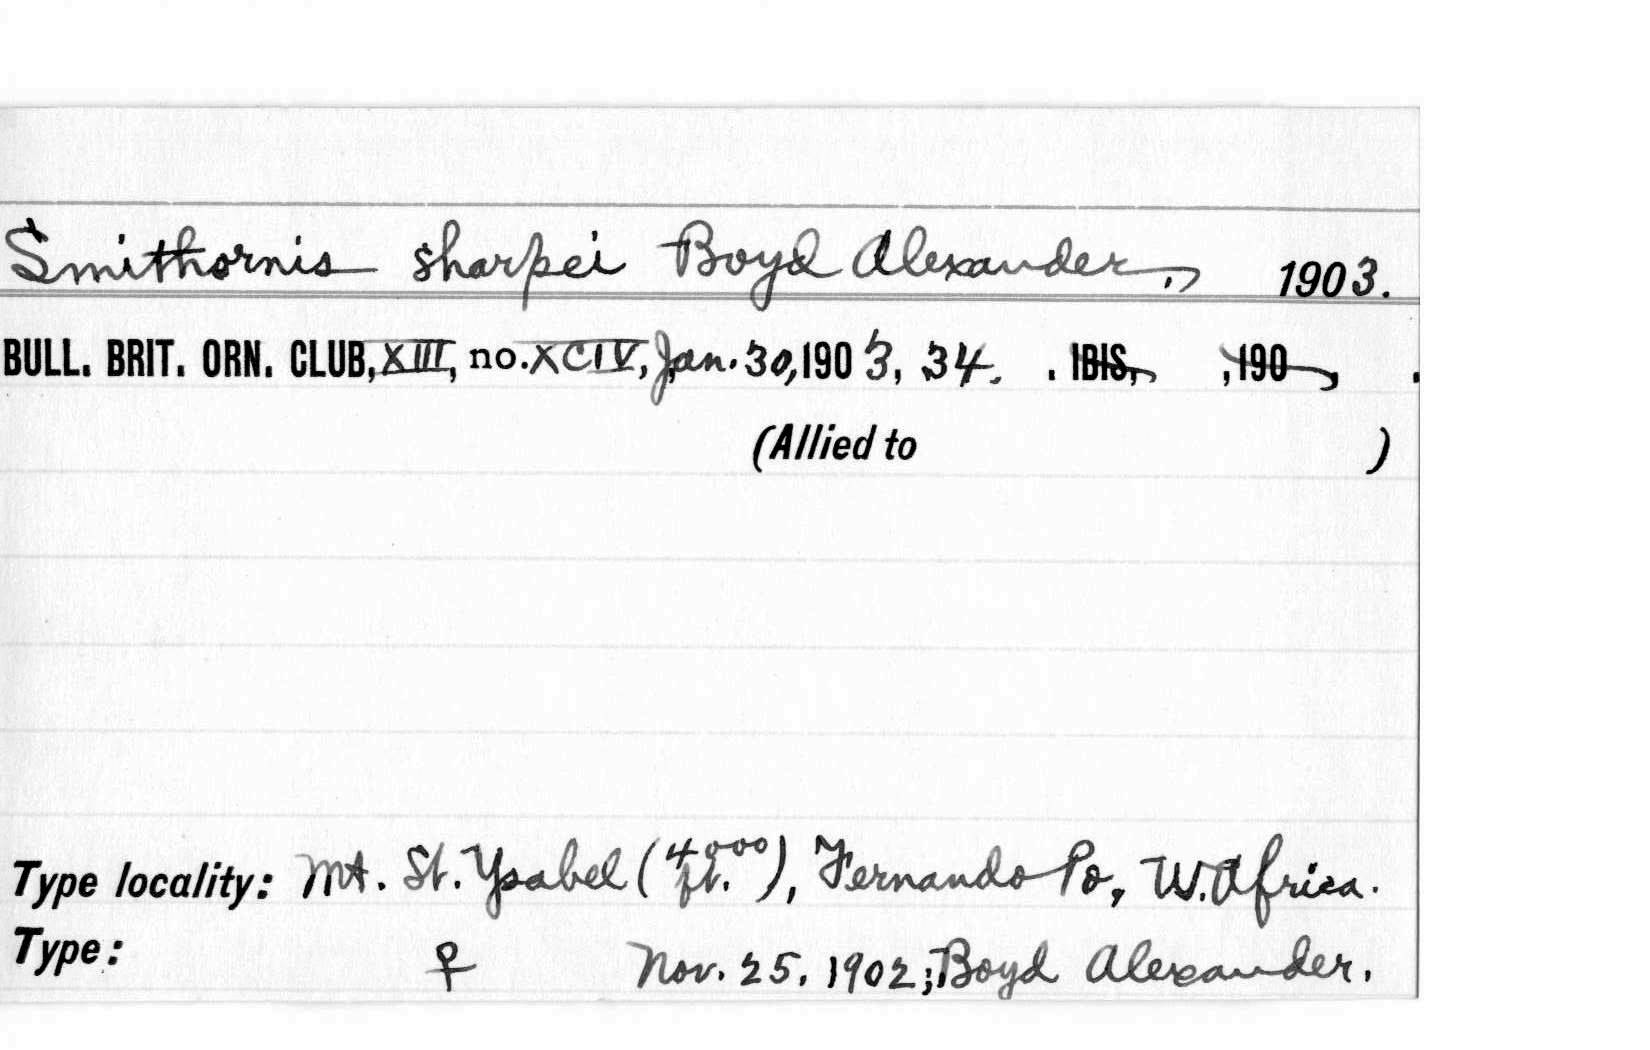 Smithornis sharpei Boyd Alexander, 1903.
BULL. BRIT. ORN. CLUB, XIII, no. XCIV, Jan. 30, 1903, 34. . IBIS, , 190 , .
(Allied to )
Type locality: Mt. St. Ysabel (4000 ft.), Fernando Po, W. Africa.
Type: ♀ Nov. 25, 1902; Boyd Alexander.